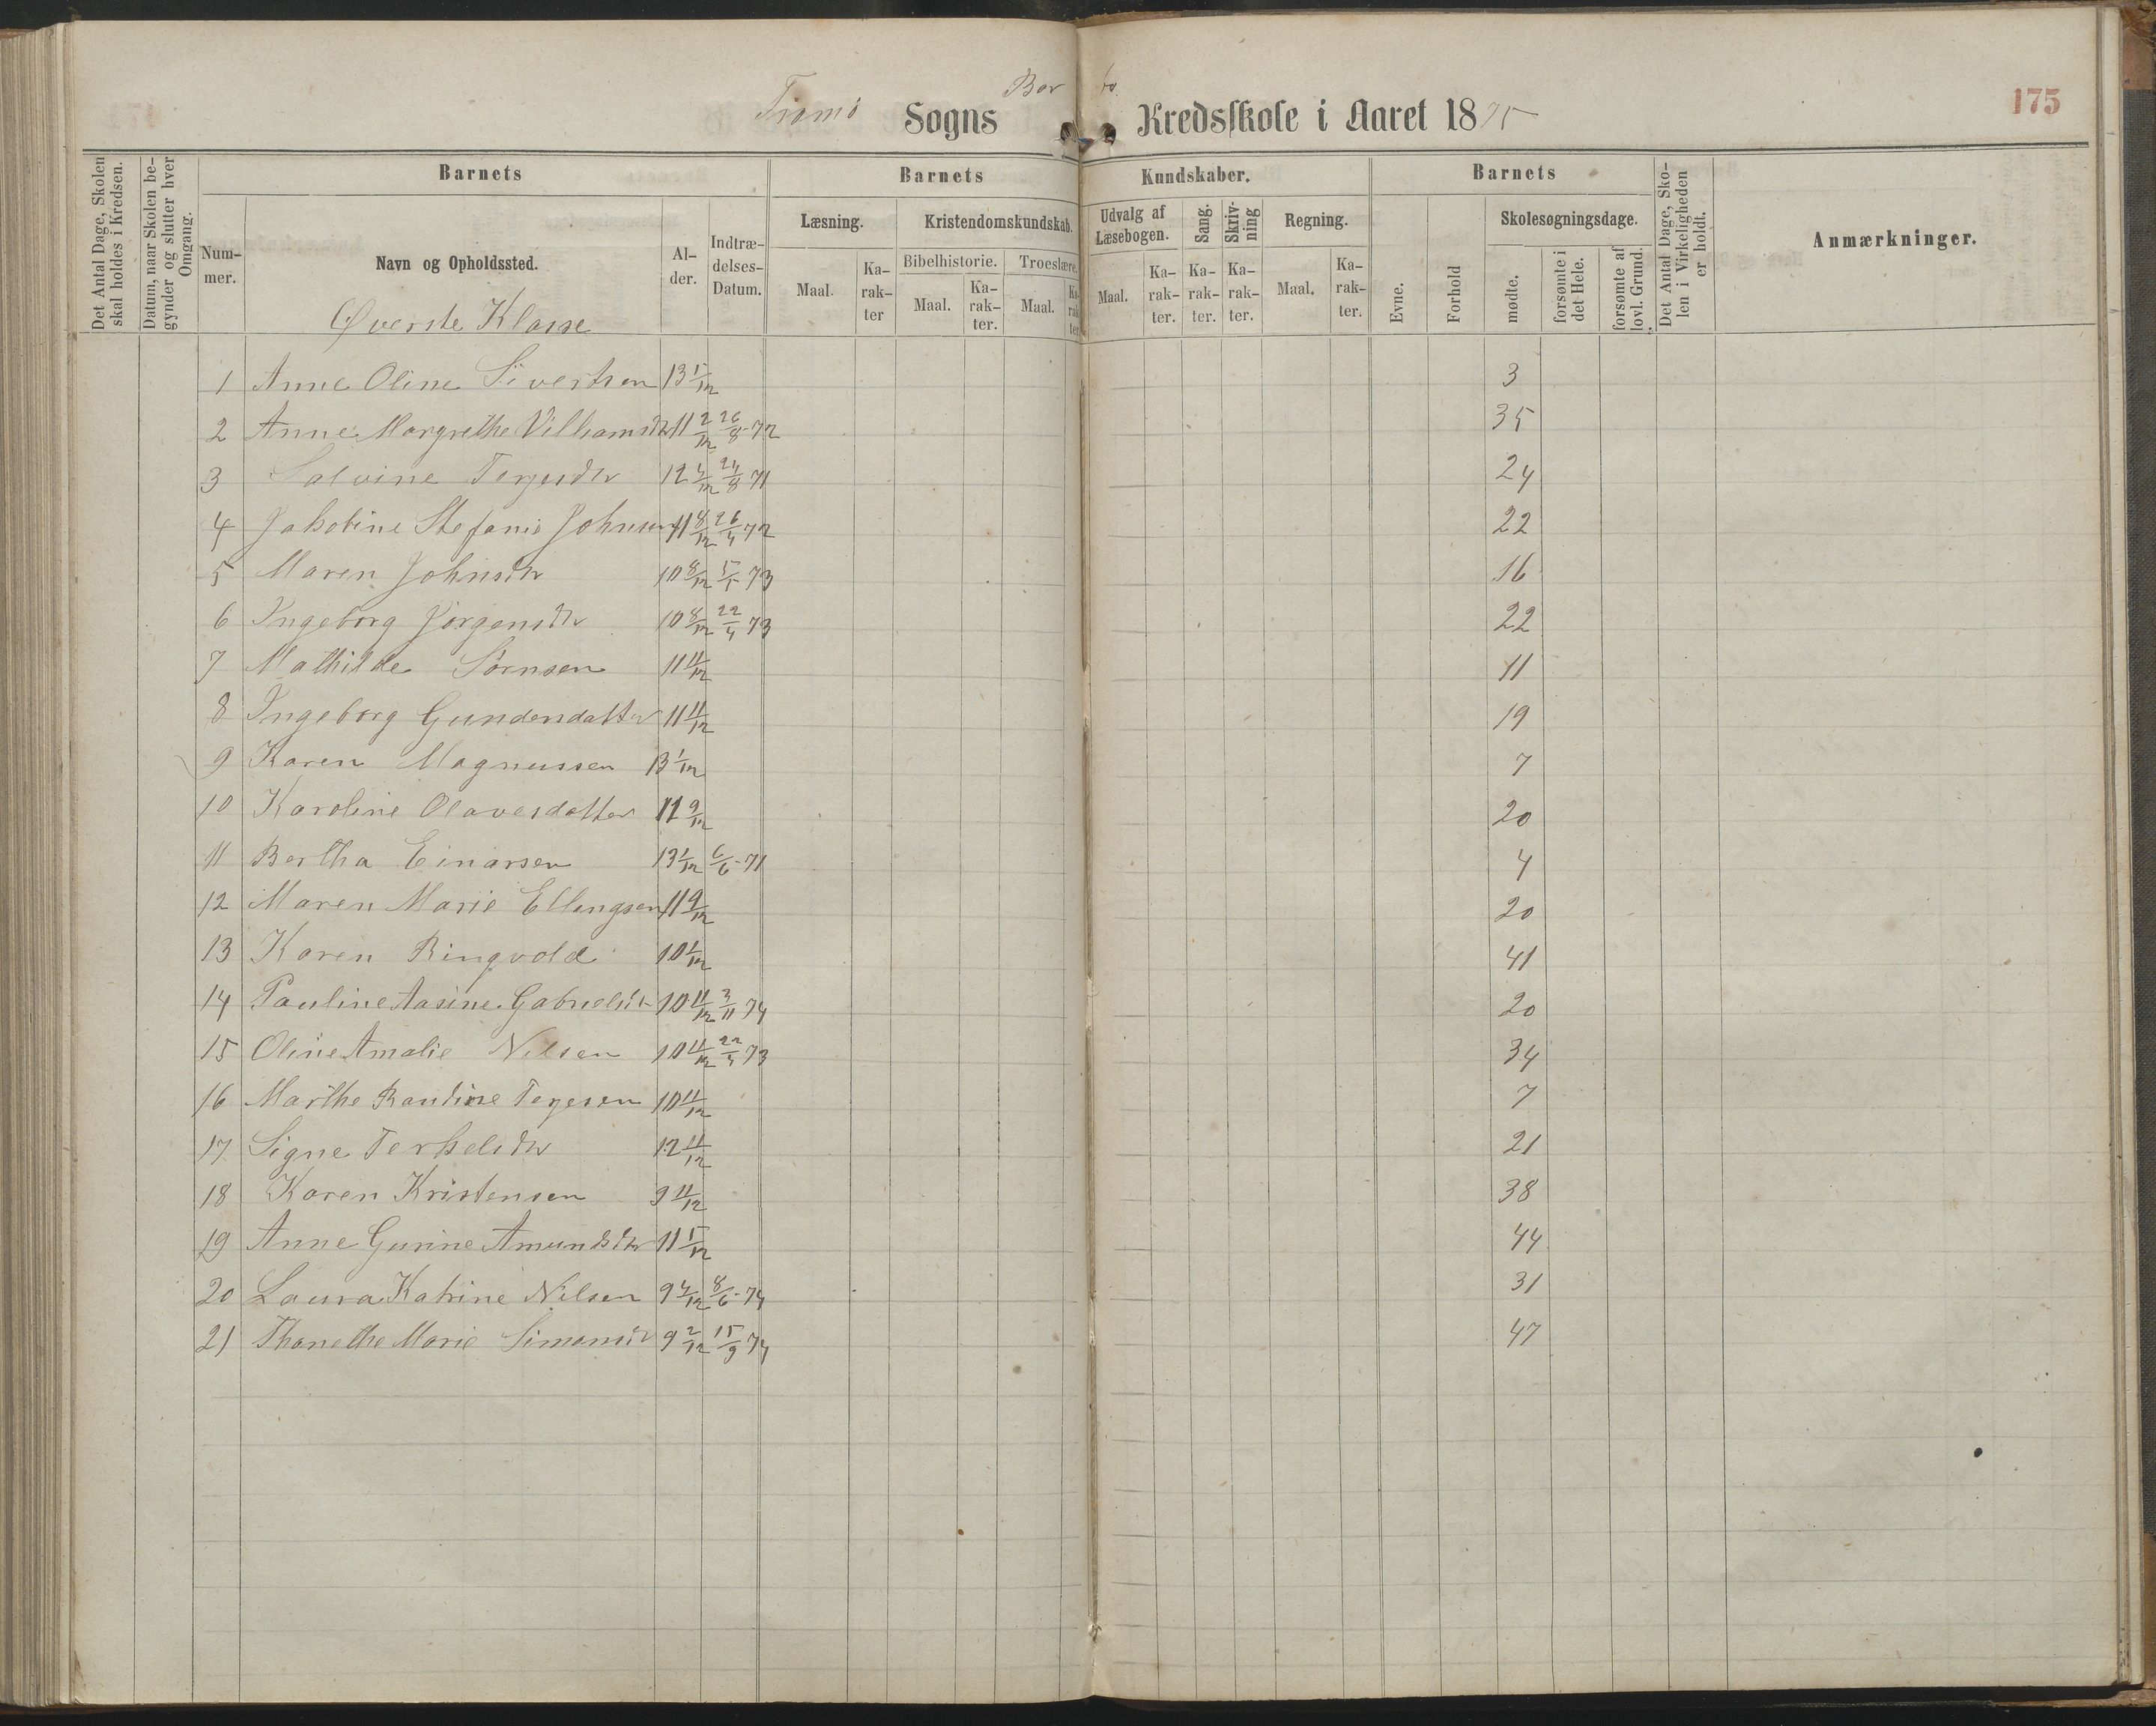 Tromø Sogns Bor bo. Kredsskole i Aaret 1875
175
Det Antal Dage, Skolen skal holdes i Kredsen.
Datum, naar Skolen begynder og slutter hver Omgang.
Barnets
Barnets Kundskaber.
Barnets
Det Antal Dage, Skolen i Virkeligheden er holdt.
Anmærkninger.
Nummer.
Navn og Opholdssted.
Alder.
Indtrædelses-Datum.
Læsning.
Kristendomskundskab.
Udvalg af Læsebogen.
Sang.
Skrivning
Regning.
Evne.
Forhold
Skolesøgningsdage.
Bibelhistorie.
Troeslære.
Maal. Karakter Maal. Karakter. Maal. Karakter Maal. Karakter. Karakter. Karakter. Maal. Karakter.
mødte.
forsømte i det Hele.
forsømte af lovl. Grund.
Øverste Klasse
1 Anne Oline Sivertsen 13 5/12 3
2 Anne Margrethe Vilhamsdtr 11 2/12 26/8-72 35
3 Salvine Terjesdtr 12 4/12 24/8 71 24
4 Jakobine Stefanie Johnsen 11 8/12 26/4 72 22
5 Maren Johnsdtr 10 8/12 5/5 73 16
6 Ingeborg Jørgensdtr 10 8/12 22/4 73 22
7 Mathilde Sørnsen 11 11/12 11
8 Ingeborg Gundersdatter 11 11/12 19
9 Karen Magnussen 13 1/12 7
10 Karoline Olavesdatter 11 9/12 20
11 Bertha Einarsen 13 1/12 6/6-71 4
12 Maren Marie Ellingsen 11 9/12 20
13 Karen Ringvold 10 1/12 41
14 Pauline Aasine Gabrielsdtr 10 11/12 3/11 74 20
15 Oline Amalie Nilsen 10 11/12 22/4 73 34
16 Marthe Randine Terjesen 10 11/12 7
17 Signe Terkelsdtr 12 11/12 21
18 Karen Kristensen 9 11/12 38
19 Anne Gurine Amundsdtr 11 5/12 44
20 Laura Katrine Nilsen 9 4/12 8/6-74 31
21 Thanethe Marie Simonsdtr 9 2/12 15/9 74 47